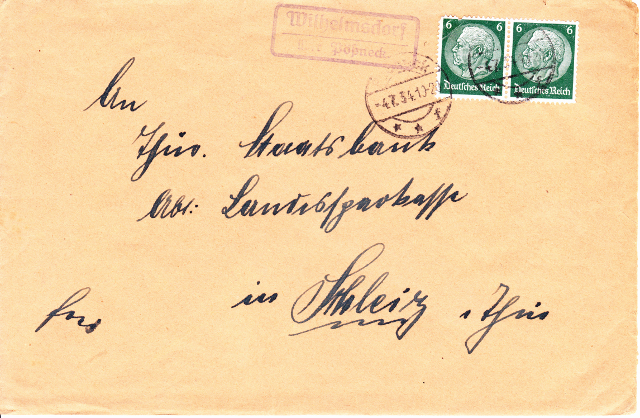 Wilhelmsdorf
Pößneck
6 6 6 6
Deutsches Reich Deutsches Reich
-4.7.34.10-
An
Thür. Staatsbank
Abt: Landessparkasse
in Schleiz i Thür